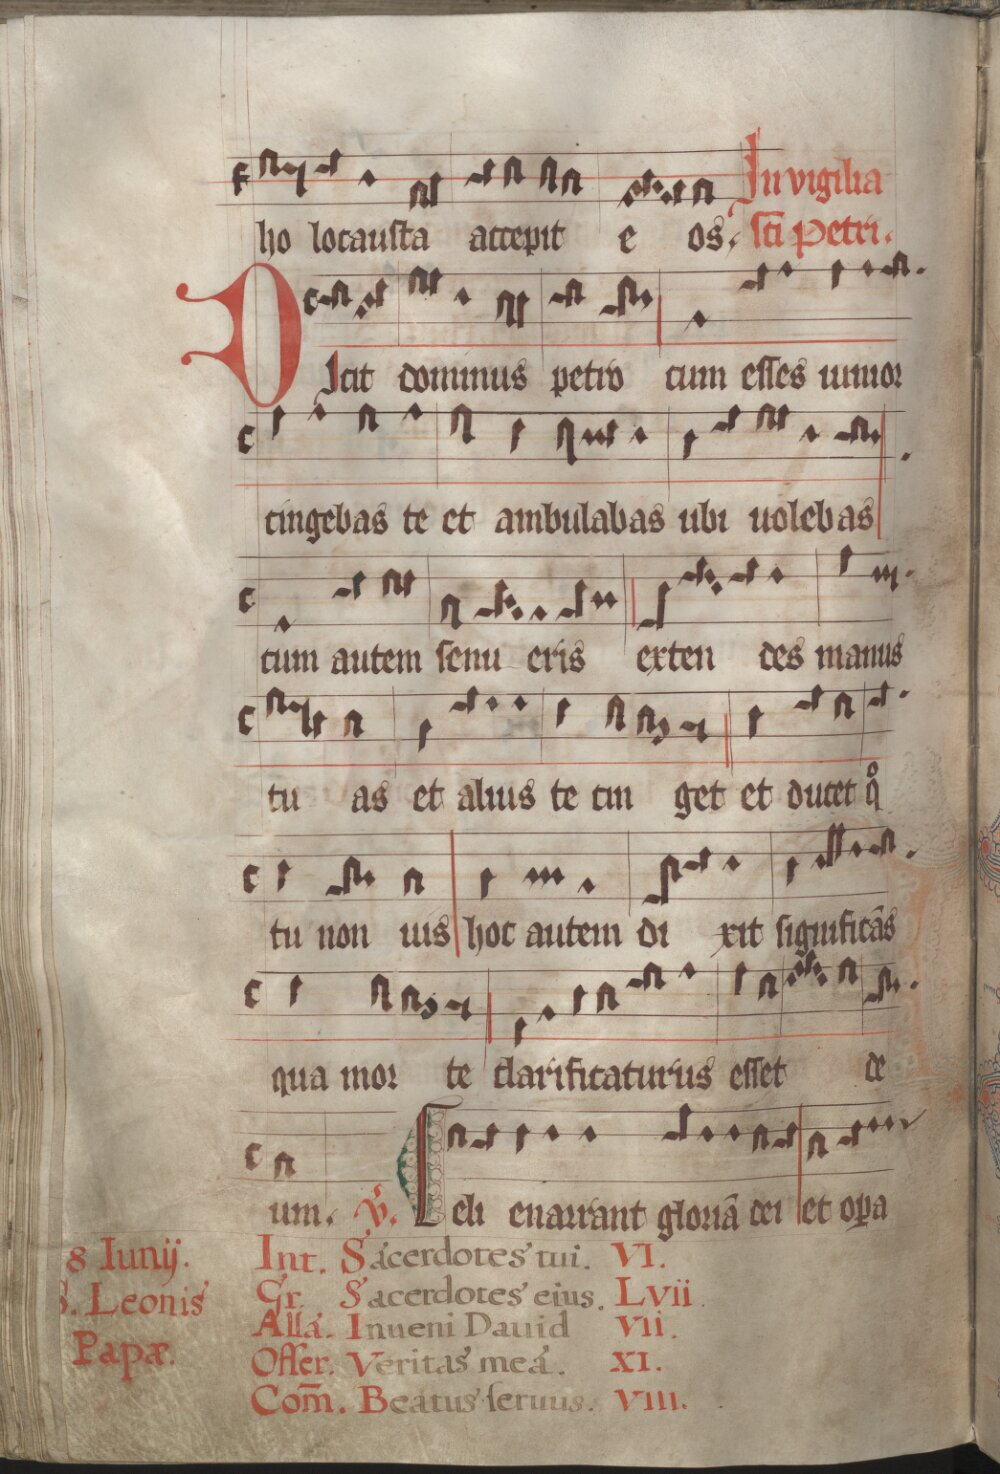 In vigilia
ho locausta accepit e os. sci Petri.
DIcit dominus petro cum esses iunior
cingebas te et ambulabas ubi uolebas
cum autem senu eris exten des manus
tu as et alius te cin get et ducet qͦ
tu non uis hoc autem di xit significās
qua mor te clarificaturus esset de
um. V. Celi enarrant gloriā dei et opa
8 Iunij. Int. Sacerdotes tui. VI.
S. Leonis Gr. Sacerdotes eius. Lvii.
Papæ. Alla. Inueni Dauid VII.
Offer. Veritas mea. XI.
Com̄. Beatus seruus. VIII.